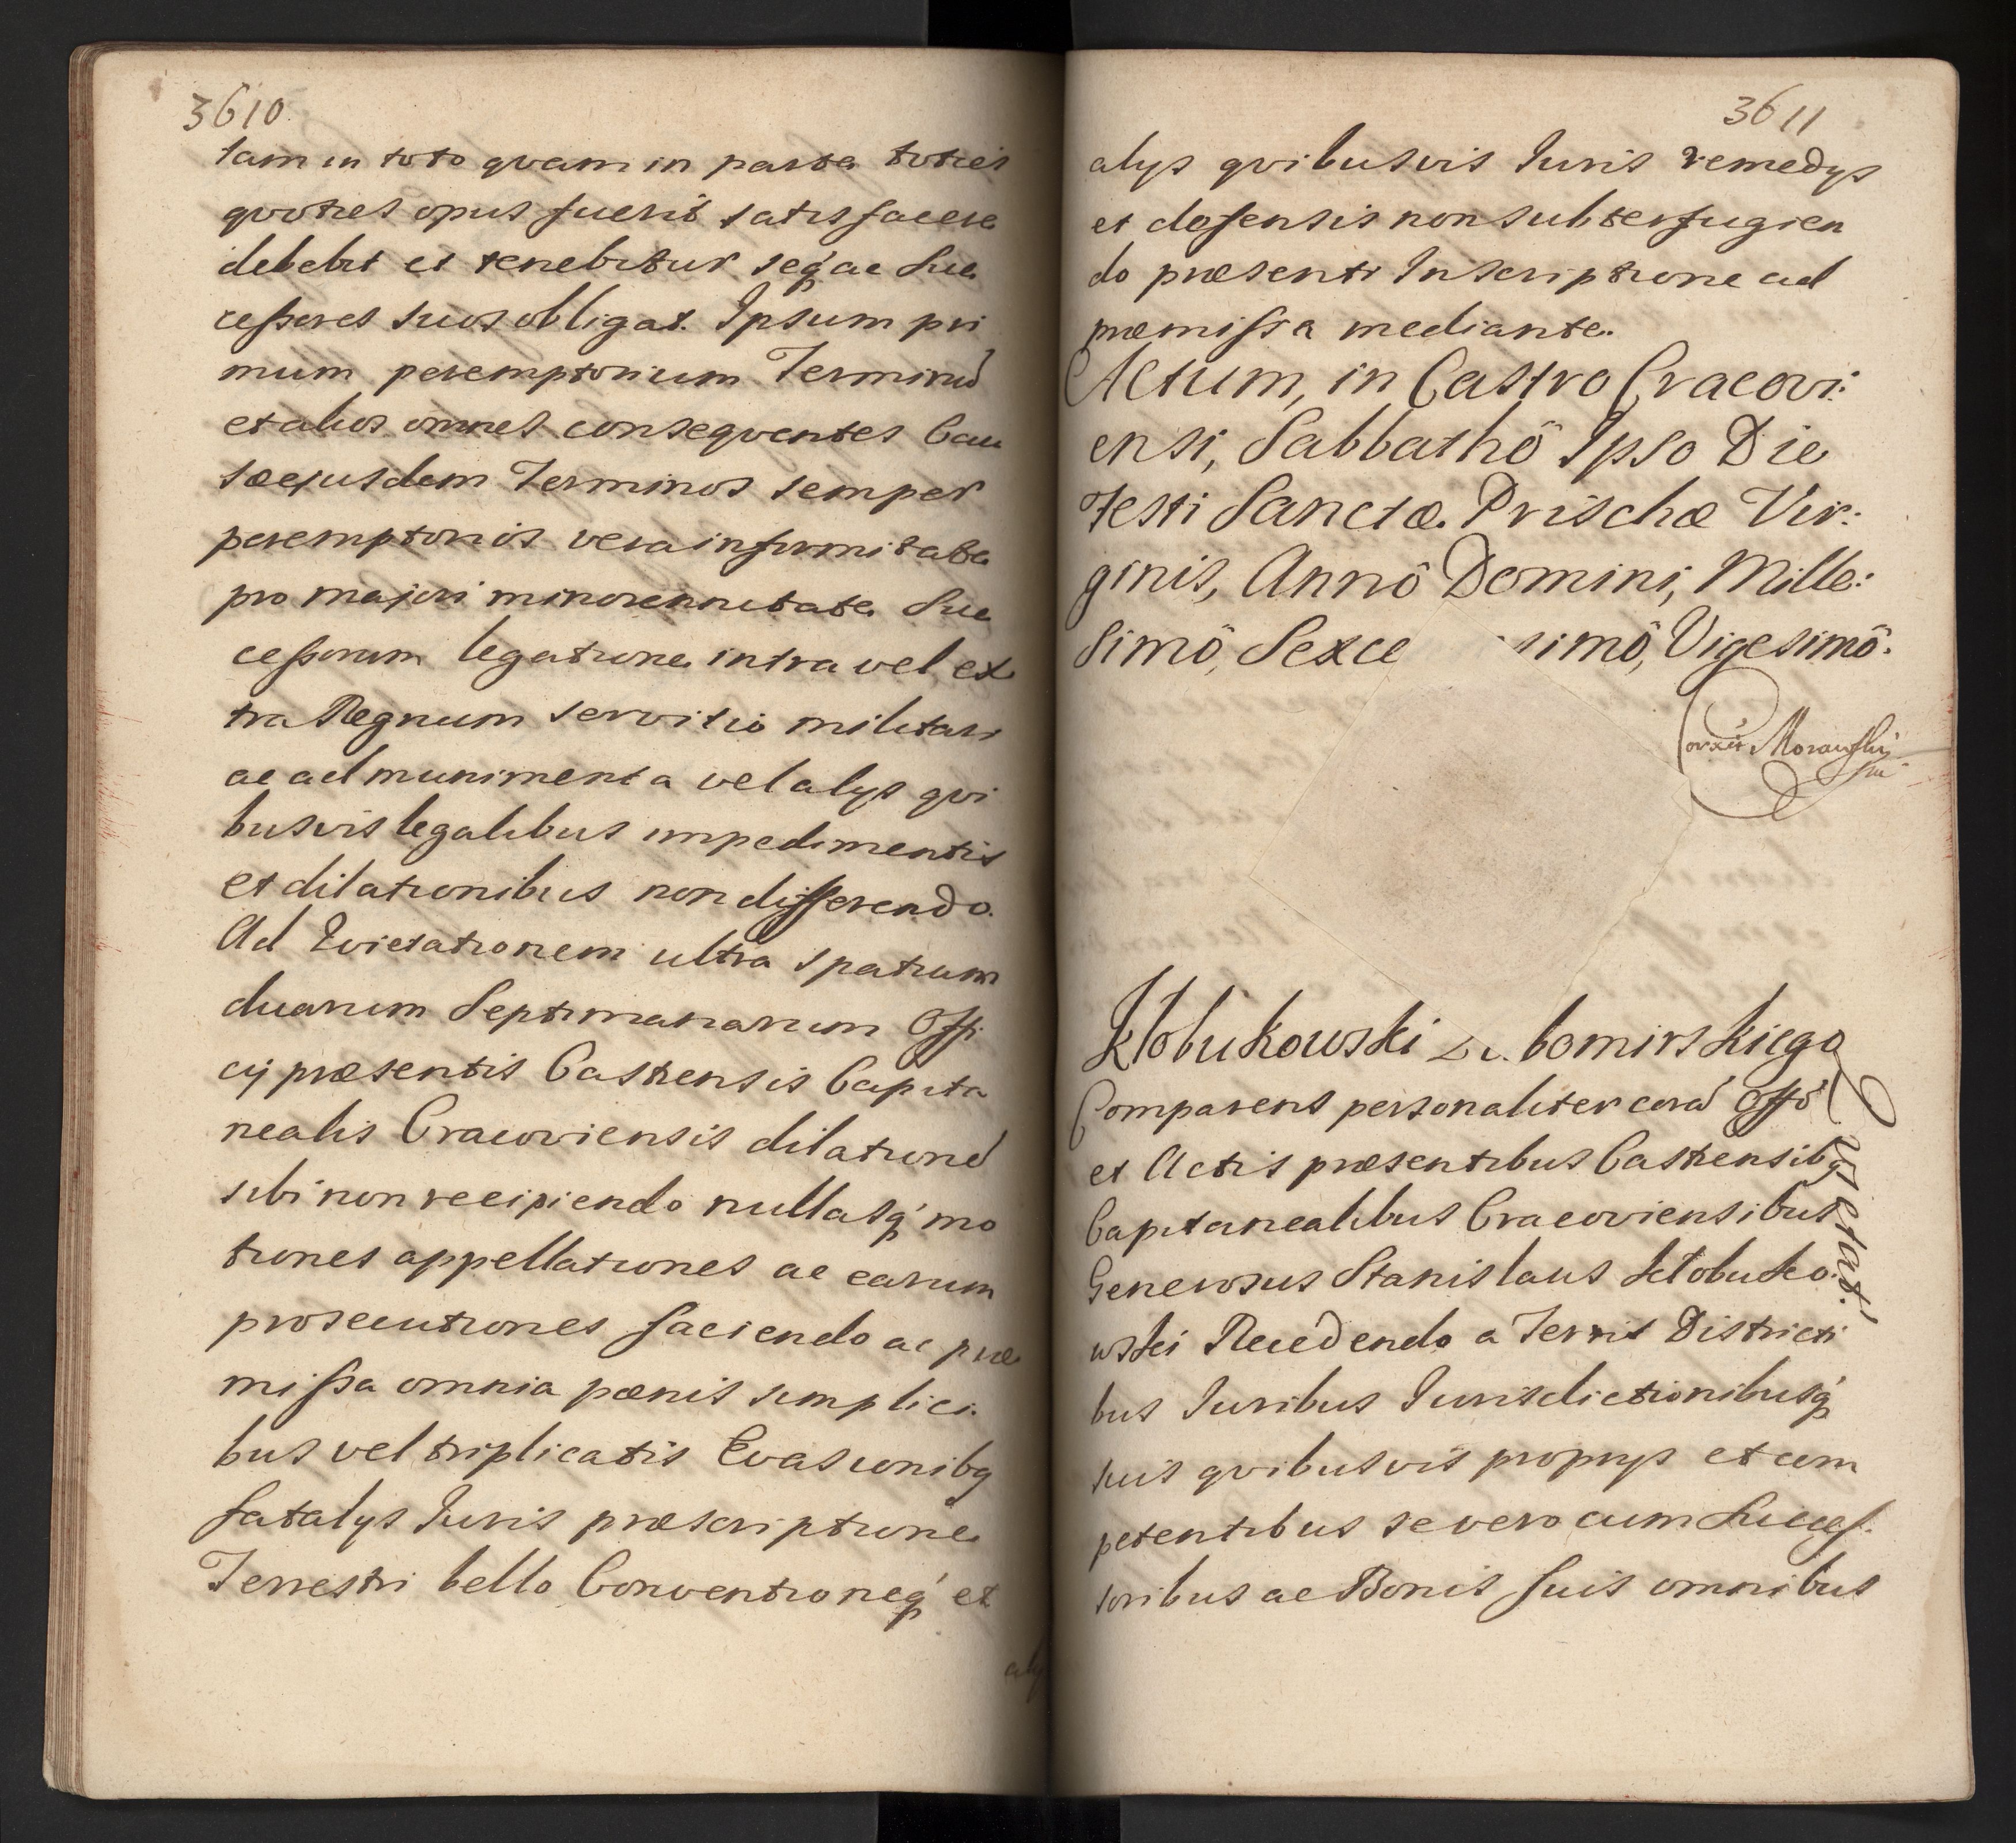 3610
tam in toto qvam in parte toties
qvoties opus fuerit satisfacere
debebit et tenebitur seq́ ac Suc
cessores suos obligat. Ipsum pri
mum peremptorium Terminū
et alios omnes conseqventes Cau
sae ejusdem Terminos semper
peremptorios vera infirmitate
pro majori minorennitate Suc
cessorum legatione intra vel ex
tra Regnum servitio militari
ac ad munimenta vel alijs qvi
busvis legalibus impedimentis
et dilationibus non differendo.
Ad Evictationem ultra spatium
duarum Septimanarum Offi
cij præsentis Castrensis Capita
nealis Cracoviensis dilationē
sibi non recipiendo nullasq́ mo
tiones appellationes ac earum
prosecutiones faciendo ac præ
missa omnia pœnis simplici
bus vel triplicatis Evasionibq
fatalijs Juris præscriptione
Terrestri bello Conventioneq́ et
alij
3611
alijs qvibusvis Juris remedijs
et defensis non subterfugien
do præsenti Inscriptione ad
præmissa mediante.
Actum, in Castro Cracovi:
ensi, Sabbathô Ipso Die
Festi Sanctæ Prischæ Vir:
ginis, Annô Domini, Mille:
simô, Sexce simô, Vigesimô.
Corexit Morawski
Kłobukowski bomirskiego
Qvietat.
Comparens personaliter corā Offō
et Actis præsentibus Castrensibq
Capitanealibus Cracoviensibus
Generosus Stanislaus Kłobuko:
wski Recedendo a Terris Districti
bus Juribus Jurisdictionibusq́
suis qvibusvis proprijs et com
petentibus se vero cum Succes:
soribus ac Bonis suis omnibus